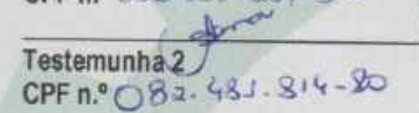 Testemunha 2
CPF n.º 082.481.814-80